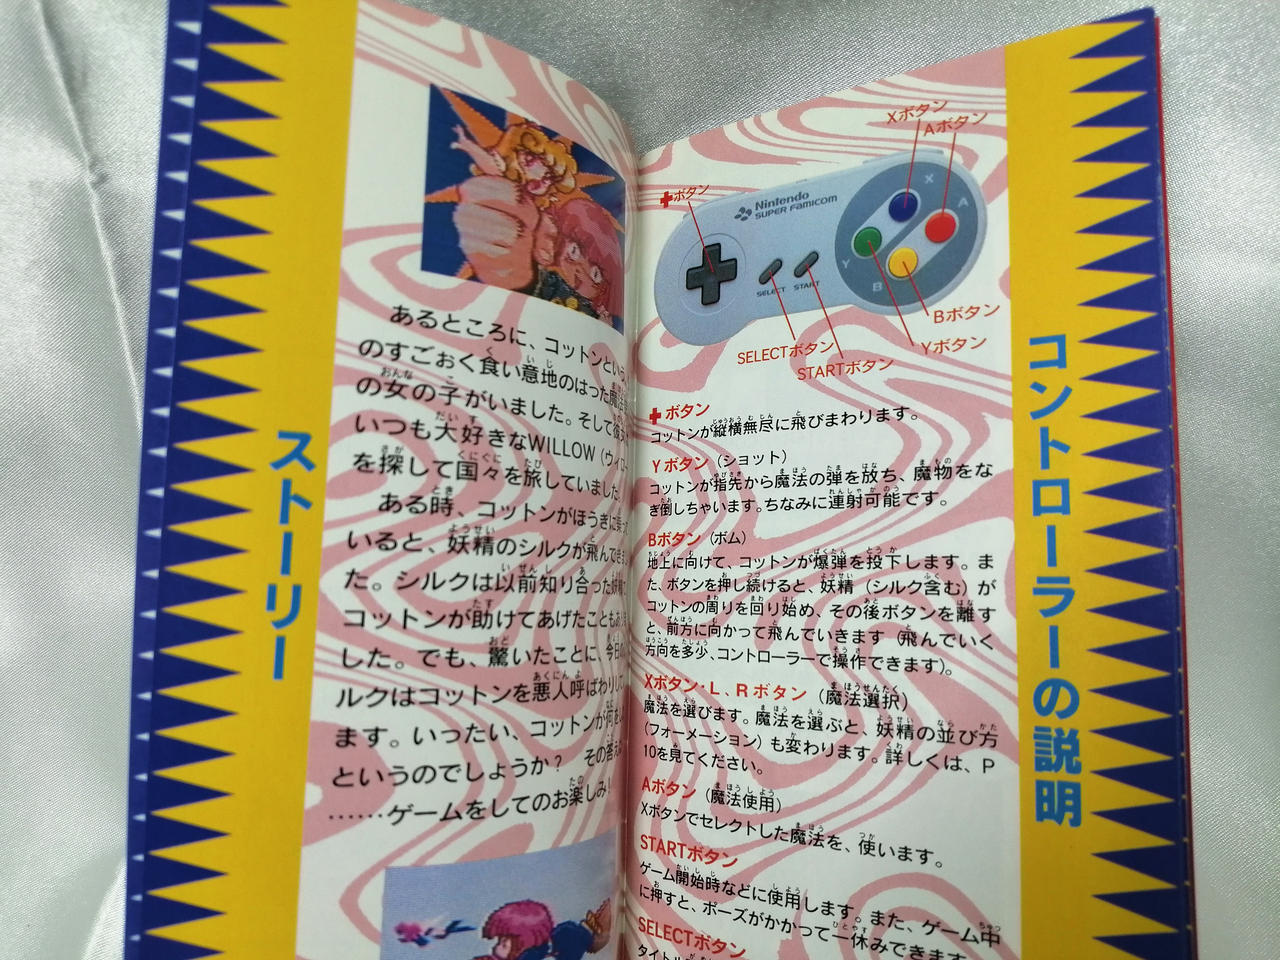 ストーリー
あるところに、コットンという
のすごぉく食い意地のはった魔法
の女の子がいました。そして彼女
いつも大好きなWILLOW(ウィロー
を探して国々を旅していました。
ある時、コットンがほうきに乗っ
いると、妖精のシルクが飛んでき
た。シルクは以前知り合った妖精
コットンが助けてあげたことも
した。でも、驚いたことに、今日
ルクはコットンを悪人呼ばわりし
ます。いったい、コットンが何を
というのでしょうか? その答え
……ゲームをしてのお楽しみ!
コントローラーの説明
Xボタン
Aボタン
✚ボタン
Nintendo
SUPER FAMICOM
X
A
Y
B
SELECT
START
Bボタン
Yボタン
SELECTボタン
STARTボタン
✚ボタン
コットンが縦横無尽に飛びまわります。
Yボタン(ショット)
コットンが指先から魔法の弾を放ち、魔物をな
ぎ倒しちゃいます。ちなみに連射可能です。
Bボタン(ボム)
地上に向けて、コットンが爆弾を投下します。ま
た、ボタンを押し続けると、妖精(シルク含む)が
コットンの周りを回り始め、その後ボタンを離す
と、前方に向かって飛んでいきます(飛んでいく
方向を多少、コントローラーで操作できます)。
Xボタン・L、Rボタン(魔法選択)
魔法を選びます。魔法を選ぶと、妖精の並び方
(フォーメーション)も変わります。詳しくは、P
10を見てください。
Aボタン(魔法使用)
Xボタンでセレクトした魔法を、使います。
STARTボタン
ゲーム開始時などに使用します。また、ゲーム中
に押すと、ポーズがかかって一休みできます。
SELECTボタン